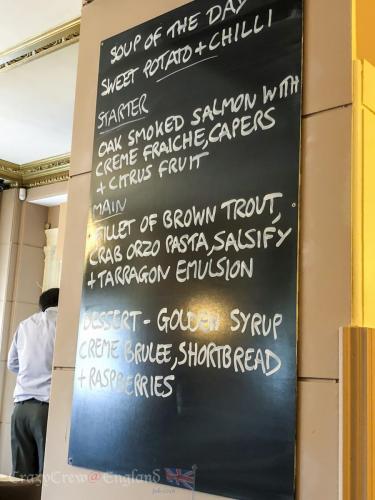 SOUP OF THE DAY
SWEET POTATO + CHILLI
STARTER
OAK SMOKED SALMON WITH
CREME FRAICHE, CAPERS
+ CITRUS FRUIT
MAIN
FILLET OF BROWN TROUT,
CRAB ORZO PASTA, SALSIFY
+ TARRAGON EMULSION
DESSERT - GOLDEN SYRUP
CREME BRULEE, SHORTBREAD
+ RASPBERRIES
CrazyCrew@England